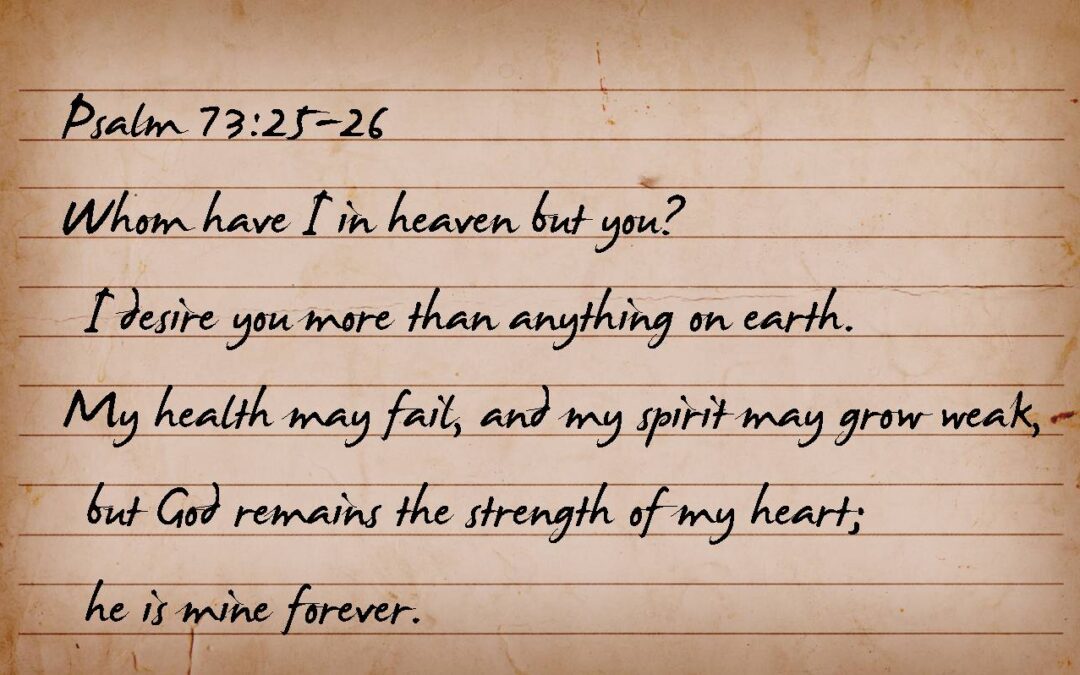 Psalm 73:25-26
Whom have I in heaven but you?
I desire you more than anything on earth.
My health may fail, and my spirit may grow weak,
but God remains the strength of my heart;
he is mine forever.